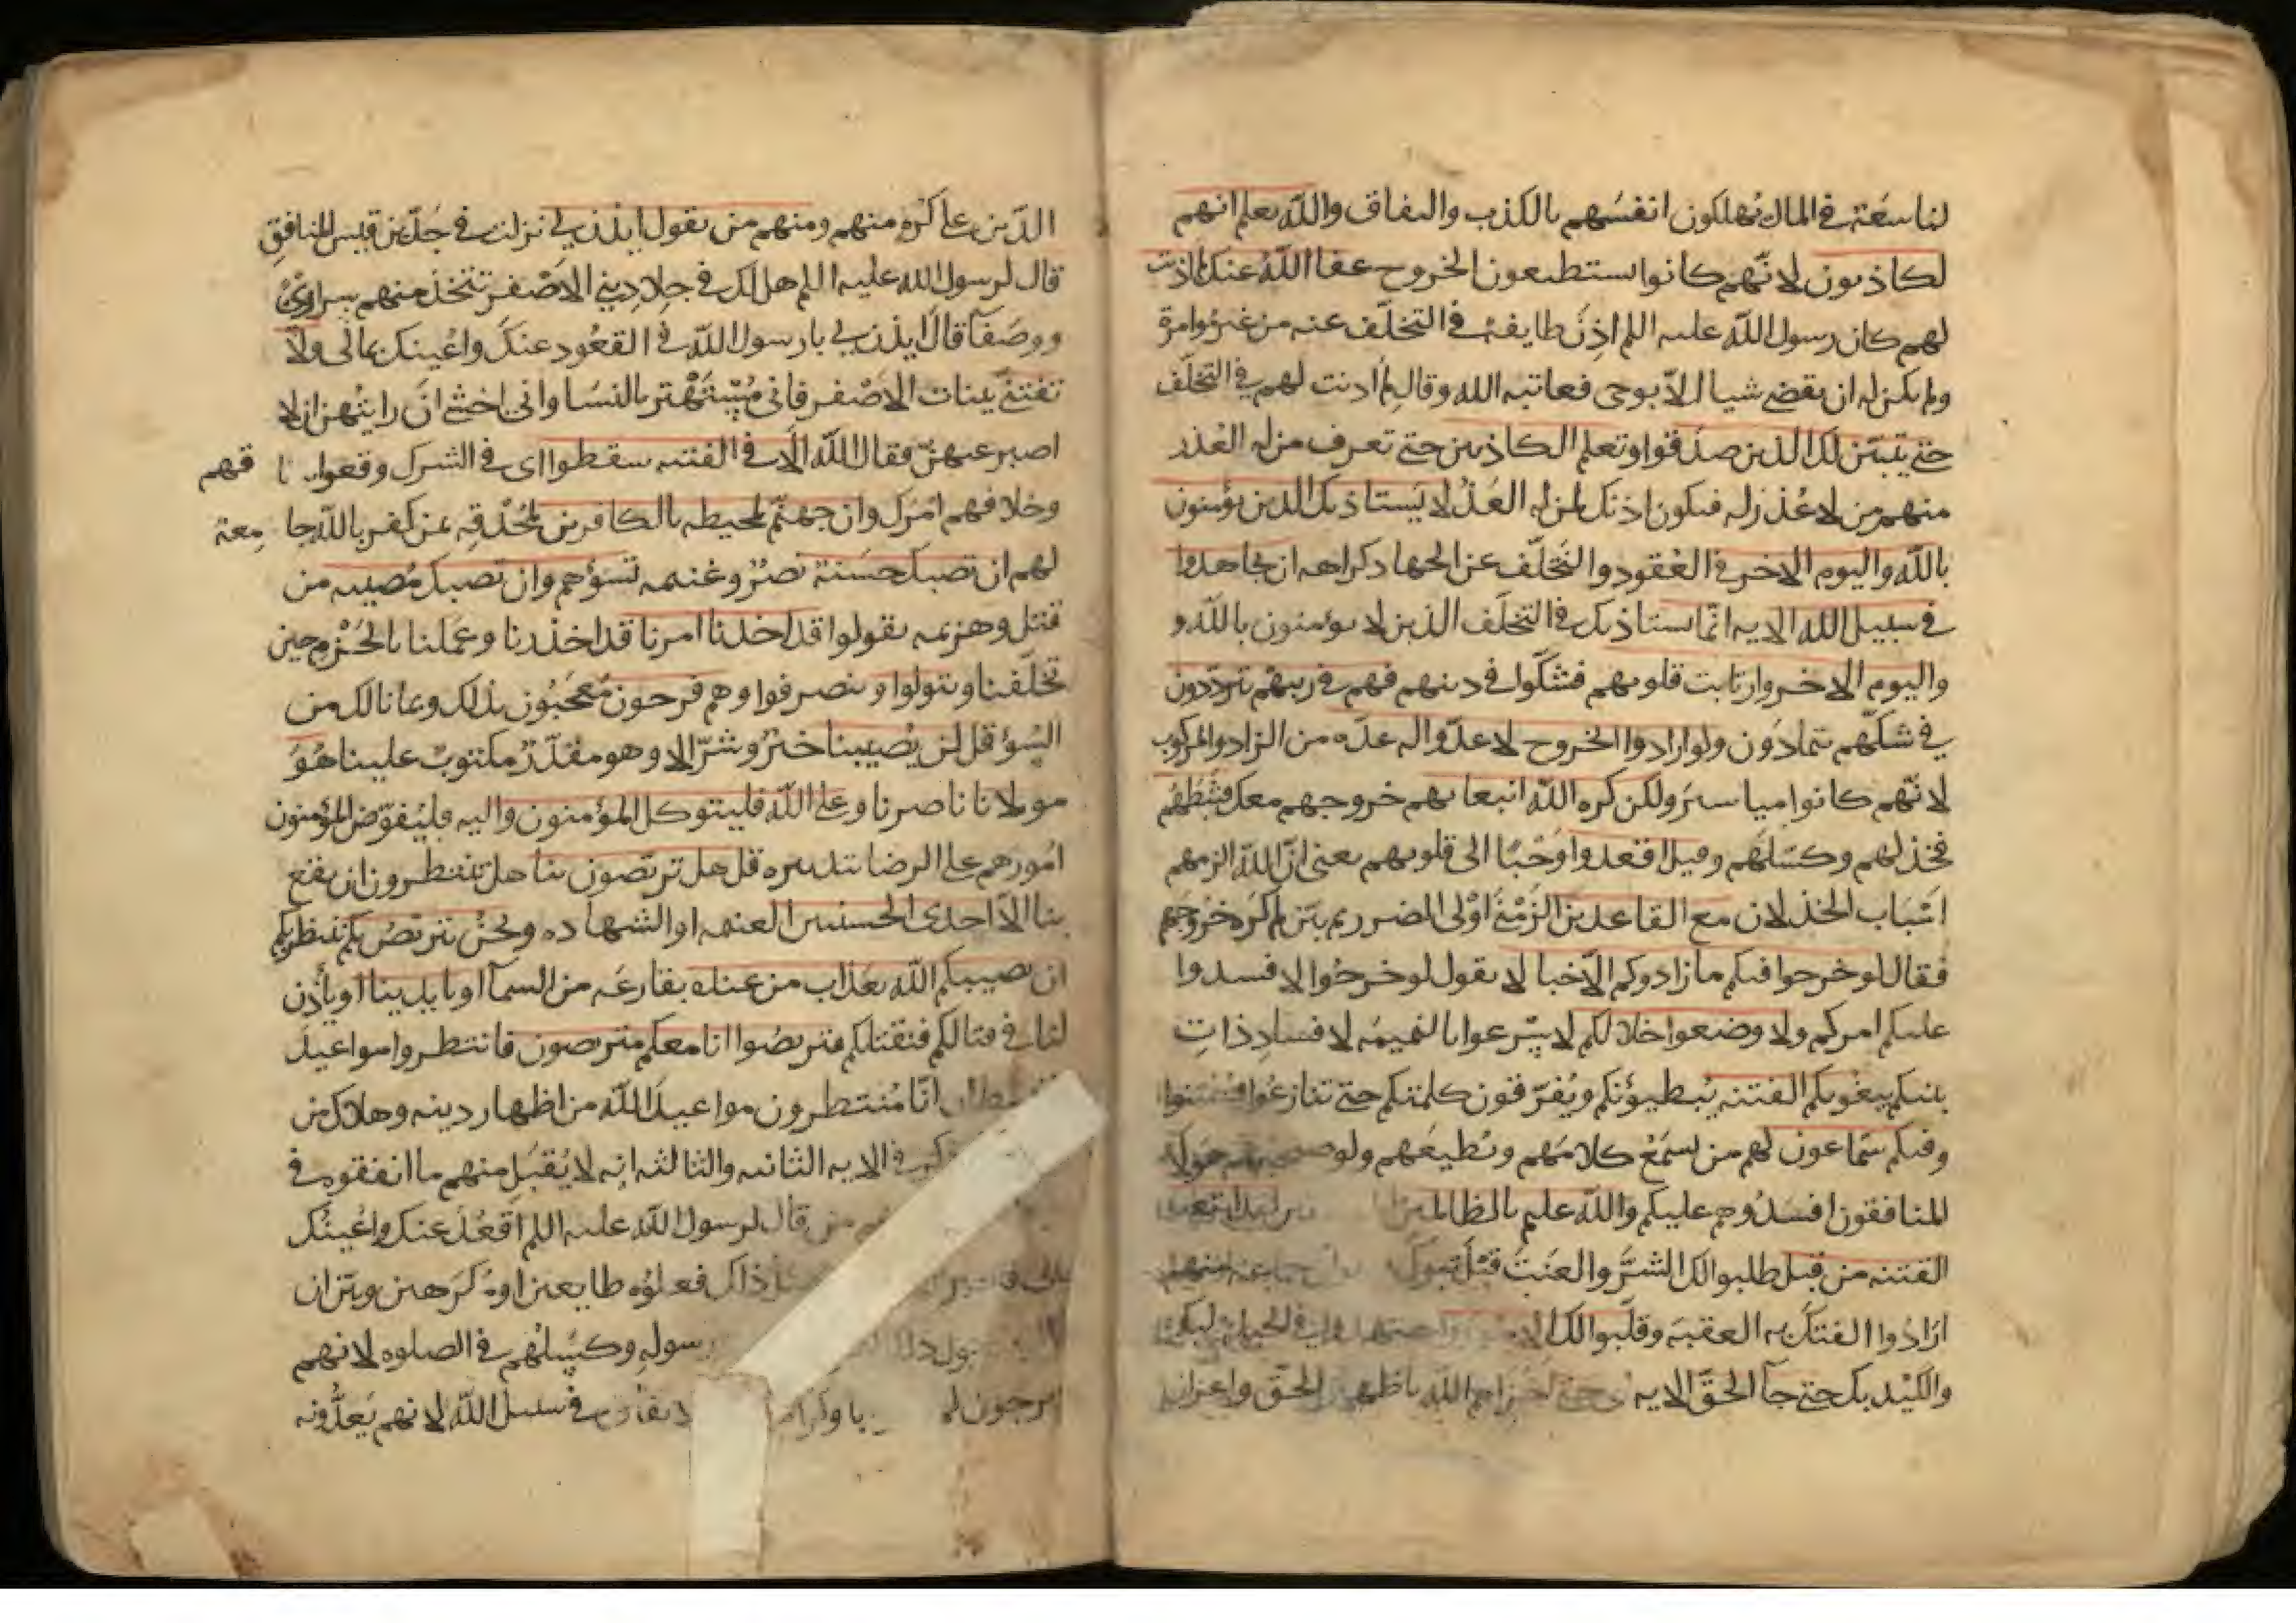 لنا سَعَة في المال يُهلكون انفسَهم بالكذب والنفاق والله يعلم انهم
لكاذبون لانّهم كانوا يستطيعون الخروج عفا الله عنك لم اذنت
لهم كان رسول الله عليه اللم اذِنَ طايفة في التخلّف عنه من غير مُوامرة
ولم يكن له ان يقضي شيا الّا بوحى فعاتبه الله وقال لِمَ اذنت لهم في التخلّف
حتى يتبيّن لك الذين صدقوا وتعلم الكاذبين حتى تعرف من له العُذر
منهم من لا عُذر له فيكون اذنك لمن له العُذر لا يَستاذنك الذين يؤمنون
بالله واليوم الاخر في القعود والتَخلّف عن الجهاد كراهه ان يجاهدوا
في سبيل الله الايه انّما يستاذنك في التخلّف الذين لا يومنون بالله و
واليوم الاخر وارتابت قلوبهم فشكّوا في دينهم فهم في ريبهم يتردّدون
في شكّهم يتمادَون ولو ارادوا الخروج لاعدّوا له عدّه من الزاد والمركوب
لانّهم كانوا مياسير ولكن كره الله انبعاثهم خروجهم معك فثبّطهم
فخذلهم وكسّلَهم وقيل اقعدوا وَحْيًا الى قلوبهم يعنى انّ الله الزمهم
اسْبَاب الخذلان مع القاعدين الزَمْنَى اوْلى الضرر ثم بيّن لم كَرِهَ خروجهم
فقال لو خرجوا فيكم ما زادوكم الّا خبالا يقول لو خرجُوا لافسدوا
عليكم امركم ولاوضعوا خلالكم لاسْرعوا بالنميمه لافسادِ ذاتِ
بينكم يبغونكم الفتنه يُبطيؤنكم ويُفرّقون كلمتكم حتى تنازعُوا فتفتتنوا
وفيكم سمّاعون لهم من يسمَعُ كلامَهم ويُطيعَهم ولو هؤلاء
المنافقون افسَدُوهم عليكم والله عليم بالظالمين لقد ابتغوا
الفتنه من قبل طلبوا لك الشرَّ والعَنتَ قَبْلَ تبوك جماعه منهم
ارَادُوا الفتك به العقبَه وقلّبوا لك
والكَيْد بك حتى جآ الحقّ الايه حتى اخزاهم الله باظهار الحقّ واعزاز
الدّين على كُره منهم ومنهم من يقول ايذن لي نزلت في جَدّ بن قيس المنافقِ
قال لرسول الله عليه اللم هل لك في جِلادِ بني الاصْفر تتخذ منهم سراريَّ
ووصَفآ قال ايذن لي يا رسول الله في القعُود عنكَ واعُينك بمالى ولا
تفتنّي ببنات الاصْفر فانى مُسْتَهْتر بالنسَا وانى اخشى ان رايتُهن ان لا
اصبر عنهنّ فقال الله الَا في الفتنه سقطوا اى في الشرك وقعوا قهم
وخلافهم امْرَك وان جهنّم لمحيطه بالكافرين لَمُحْدقِه بمن كفر بالله جا مِعة
لهم ان تصبك حسَنة نصْرٌ وغنيمه تسؤهم وان تصبك مُصيبه من
قتل وهزيمه يقولوا قد اخذنا امرنا قد اخذ حذرنا وعَملنا بالحَزْم حين
تخلّفنا ويتولوا وينصرفوا وهم فرحون مُعجَبُون بذلك وبما نالك من
السُوْ قل لن يُصيبنا خيْرٌ وشرّ الا وهو مقدّرٌ مكتوبٌ علينا هُوَ
مولانا ناصرنا وعلى الله فليتوكل المؤمنون واليه فليُفوّض المؤمنون
امُورهم على الرضا بتدبيره قل هل تربّصون بنا هل تنتظرون ان يقع
بنا الّا احدى الحسنيين الغنيمه او الشهاده ونحن نتربّصُ بكم ننتظر بكم
ان يصيبكم الله بعَذاب من عنده بقارعَه من السمآ او بايدينا او يأذن
لنا في قتالكم فنقتلكم فتربصُوا انا معكم متربصون فانتظروا مواعيدَ
انّا مُنتظرون مواعيدَ الله من اظهار دينه وهلاك من
في الايه الثانيه والثالثه انه لا يُقبَل منهم ما انفقوه في
من قال لرسول الله عليه اللم اقعُد عنك واعُينُك
ذاك فعلوُه طايعين اوْ كرَهين وبيّن ان
رسوله وكسّلهُم في الصلوه لانهم
يرجون في سبيل الله لانهم يَعدُّونه